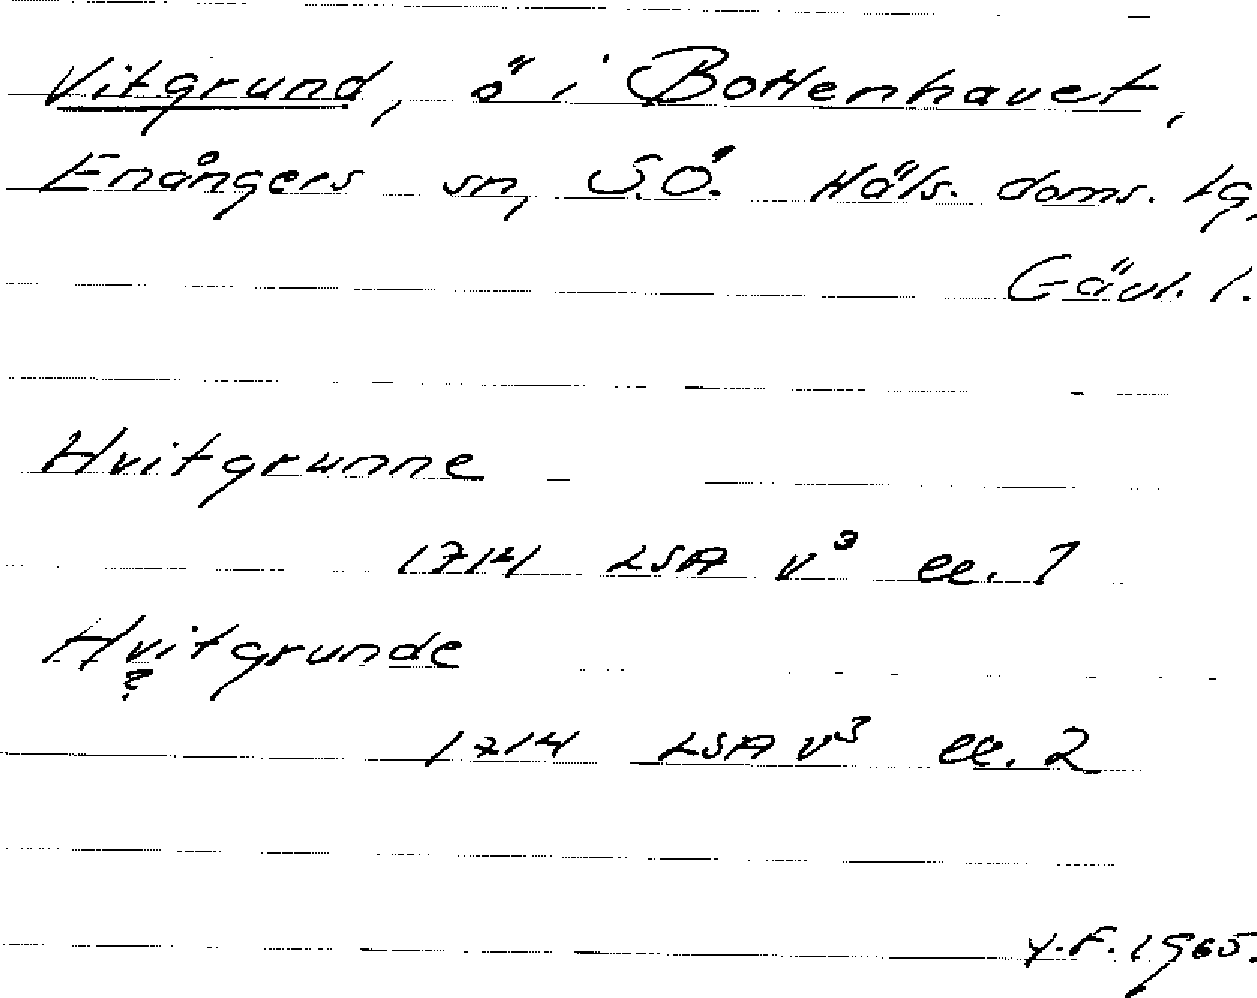 Vitgrund, ö i Bottenhavet,
Enångers sn, S.Ö. Häls. doms. lg,
Gävl. l.
Hvitgrunne
1714 LSA V³ ee. 1
Hvitgrunde
?
1714 LSA V³ ee. 2
Y.F. 1965.